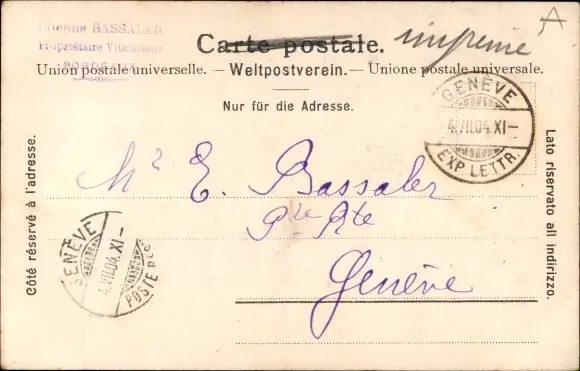 Etienne BASSALER
Propriétaire Viticulteur
BORDEAUX
Carte postale. imprimé
A
Union postale universelle. — Weltpostverein. — Unione postale universale.
Nur für die Adresse.
GENÈVE
4.VII.04.XI–
EXP. LETTR.
Côté réservé à l'adresse.
Lato riservato all indirizzo.
Mr E. Bassaler
Pte Rte
Genève
GENÈVE
4.VII.04.XI–
POSTE RES